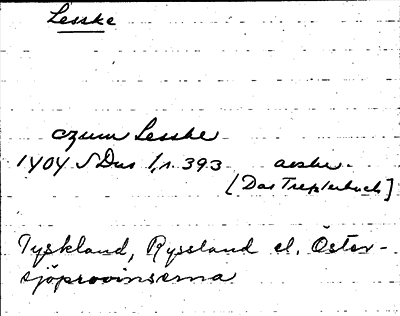 Lesske
czum Lesske
1404 SDns 1,s. 393 avskr.
[Das Treptlerbuch]
Tyskland, Ryssland el. Öster-
sjöprovinserna